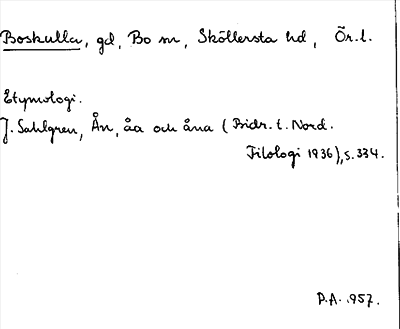 Boskulla, gd, Bo sn, Sköllersta hd, Ör. l.
Etymologi.
J. Sahlgren, Ån, åa och åna (Bidr. t. Nord.
Filologi 1936), s. 334.
P.A. 1957.